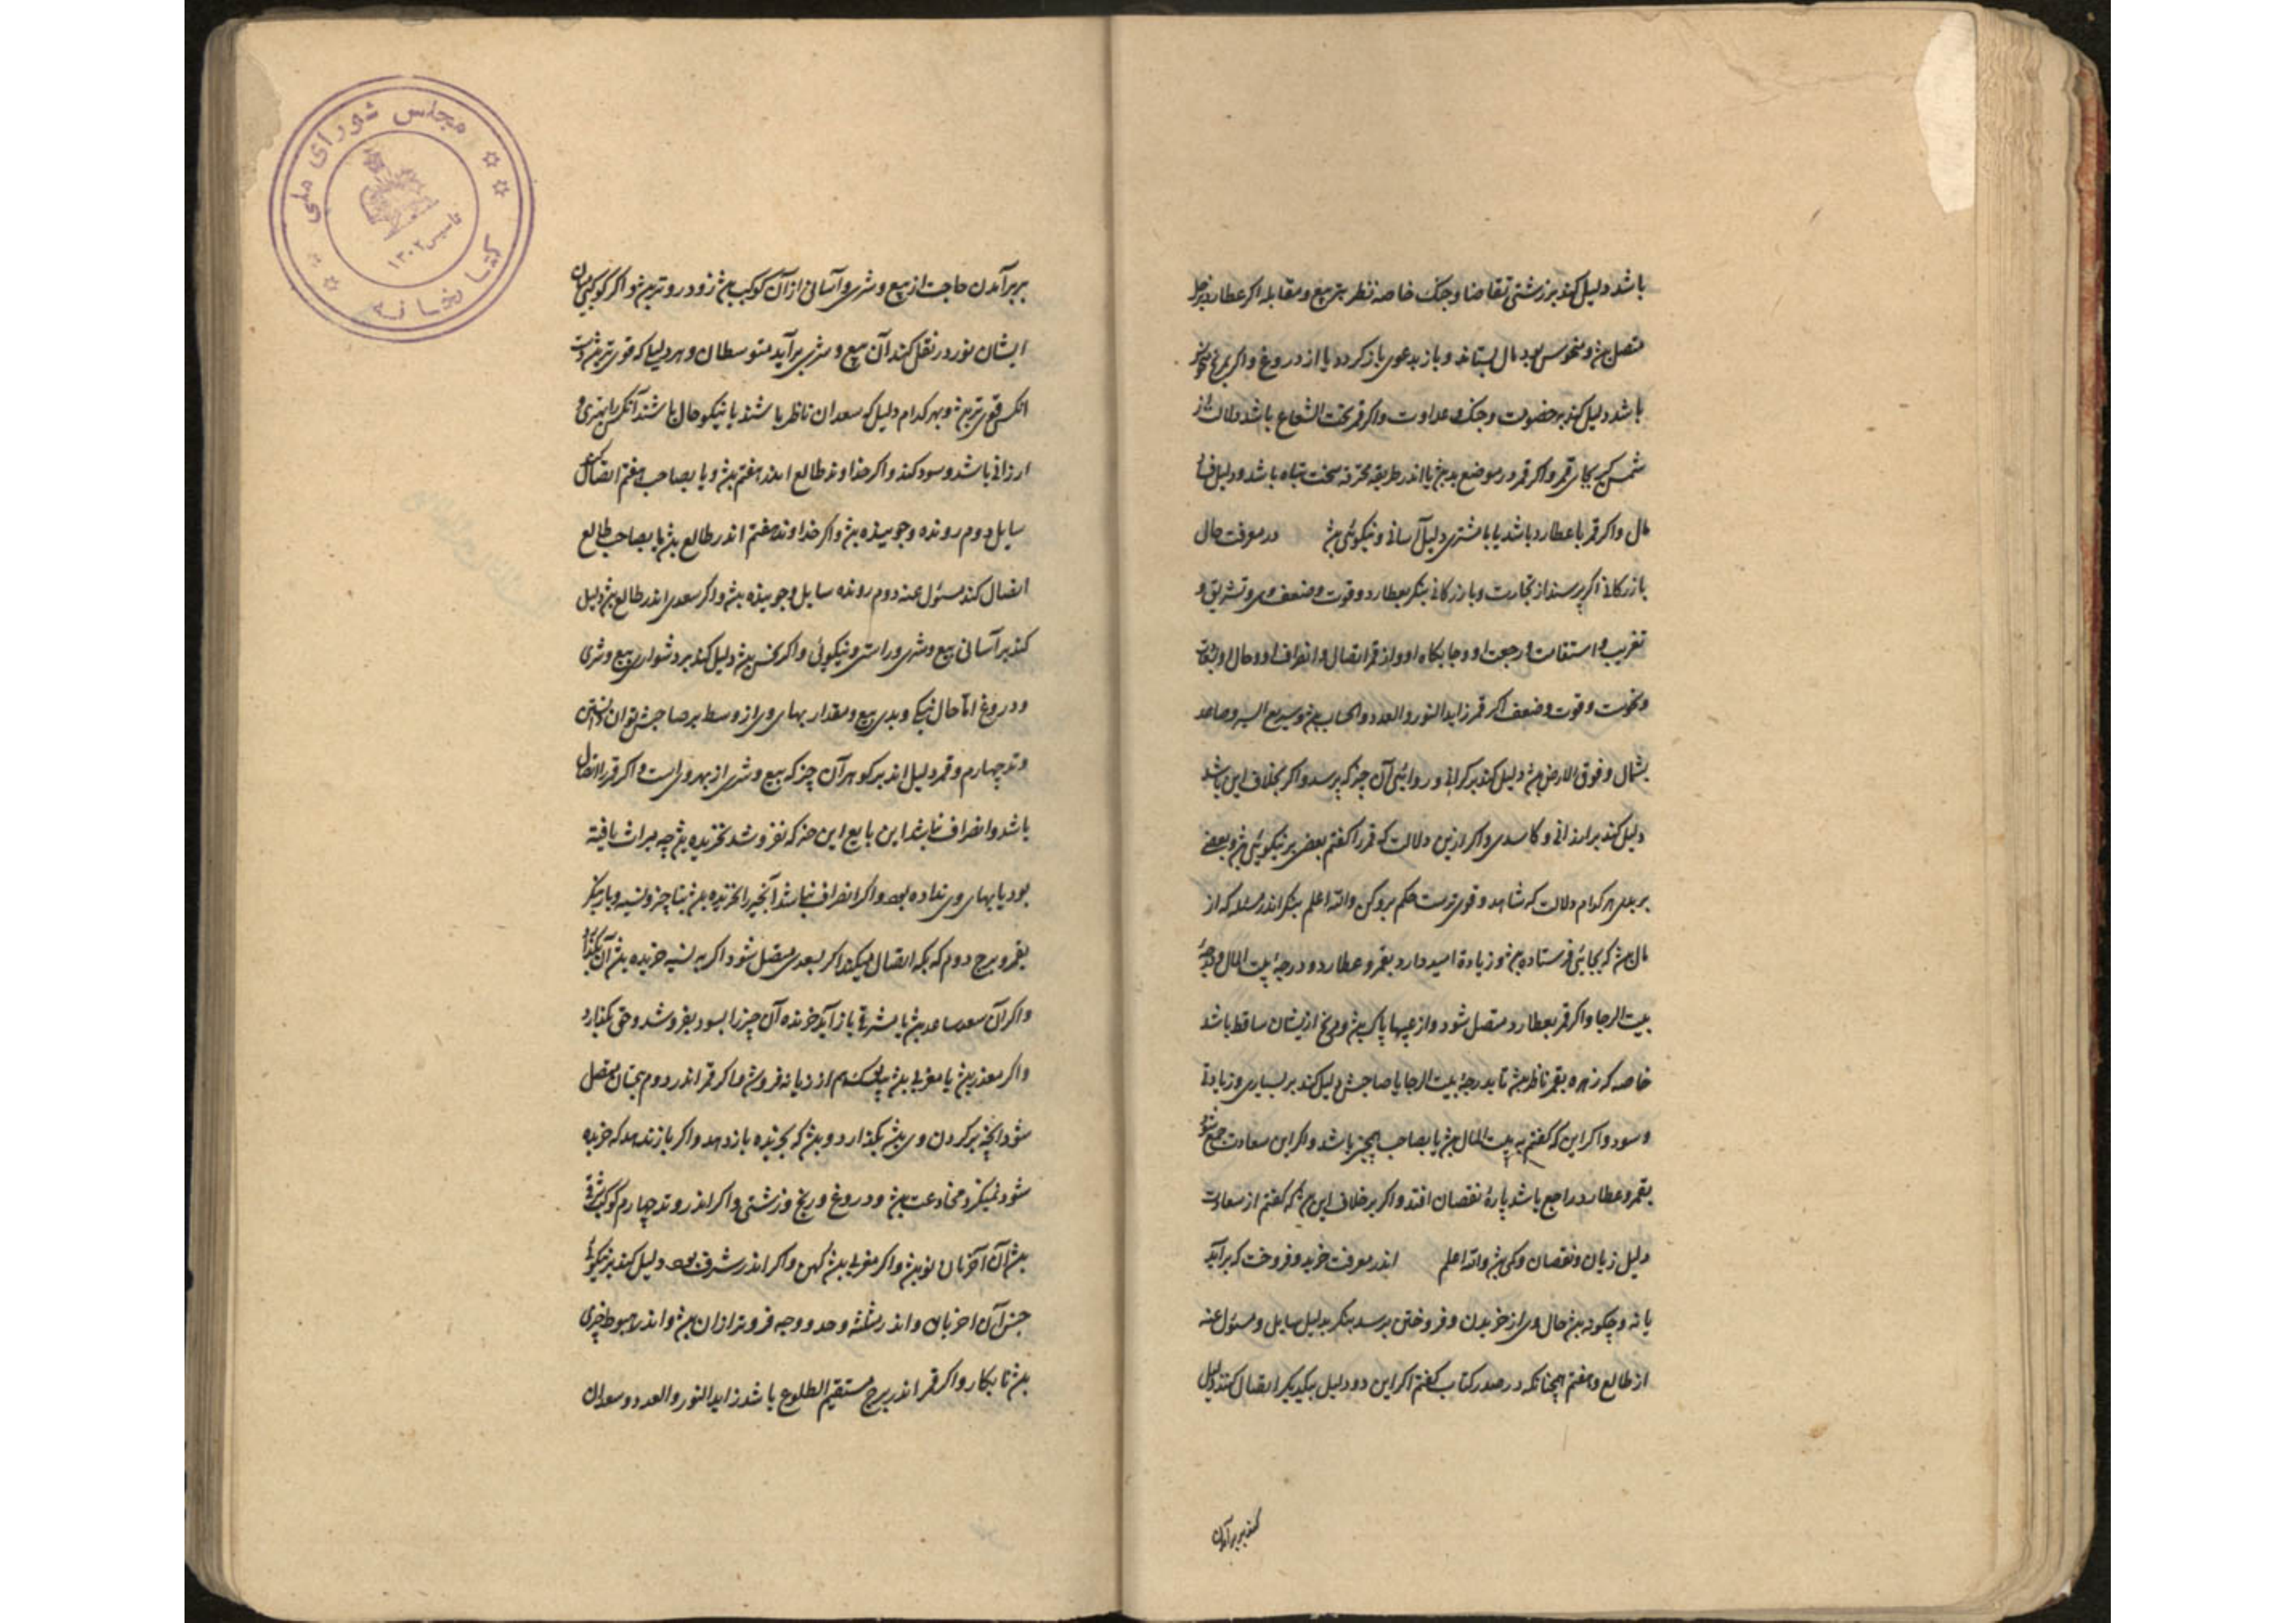 باشد دلیل کند بر زشتی تقاضا و جنک خاصه نظر تربیع و مقابله اکر عطارد بزحل
متصل بود و منحوس بود مال بستاند و باز بدعوی باز کردد یا از دروغ و اکر بمریخ منحوس
باشد دلیل کند بر خصومت و جنک و عداوت و اکر قمر تحت الشعاع باشد دلالت از
شمس کیر بجای قمر و اکر قمر در موضع بد بود یا اندر طریقه محترقه سخت تباه باشد و دلیل
مال و اکر قمر با عطارد باشد یا با مشتری دلیل آسانی و نیکوئی بود در معرفت حال
بازرکانی اکر پرسند از تجارت و بازرکانی بنکر بعطارد و قوت و ضعف وی و تشریق و
تغریب و استقامت و رجعت او و جایکاه او و از قمر اتصال و انصراف او و حال او
و نحوست و قوت و ضعف اکر قمر زاید النور و العدد و الحساب بود و سریع السیر و صاعد
بشمال و فوق الارض بود دلیل کند بر کرانی و روائی آن چیز که پرسد و اکر بخلاف این باشد
دلیل کند بر ارزانی و کاسدی و اکر ازین دلالت که قمر را کفتم بعضی بر نیکوئی بود و بعضی
بر بدی هر کدام دلالت که شاهد و قوی ترست حکم برو کن والله اعلم بنکر اندر مسئله که از
مال بود که بجائی فرستاده بود و زیادة امید دارد بقمر و عطارد و درجهٔ بیت المال و درجهٔ
بیت الرجا و اکر قمر بعطارد متصل شود و از عیبها پاک بود و مریخ ازیشان ساقط باشد
خاصه که زهره بقمر ناظر بود تا بدرجهٔ بیت الرجا یا صاحبش دلیل کند بر بسیاری و زیادتی
و سود و اکر این که کفتم به بیت المال بود یا بصاحب همچنین باشد و اکر این سعادت جمع شود
بقمر و عطارد راجع باشد پارهٔ نقصان افتد و اکر بر خلاف این بود که کفتم از سعادت
دلیل زیان و نقصان و کمی بود والله اعلم اندر معرفت خرید و فروخت که برآید
یا نه و چکونه بود حال وی از خریدن و فروختن پرسد بنکر بدلیل سایل و مسئول عنه
از طالع و هفتم همچنانکه در صدر کتاب کفتم اکر این دو دلیل بیکدیکر اتصال کنند دلیل
کند بر برآمدن
بر برآمدن حاجت از بیع و شری و آسانی از آن کوکب بود زودروتر بود و اکر کوکبی میان
ایشان نور در نقل کند آن بیع و شری برآید بمتوسطان و هر دلیل که قوی تر بود
انکس قوی تر بود و بهر کدام دلیل که سعدان ناظر باشند یا نیکو حال باشند آنکس را بهتری و
ارزانی باشد و سود کند و اکر خداوند طالع اندر هفتم بود و یا بصاحب هفتم اتصال کند
سایل دوم رونده و جوینده بود و اکر خداوند هفتم اندر طالع بود یا بصاحب طالع
اتصال کند مسئول عنه دوم رونده سایل و جوینده بود و اکر سعدی اندر طالع بود دلیل
کند بر آسانی بیع و شری و راستی و نیکوئی و اکر نحس بود دلیل کند بر دشواری بیع و شری
و دروغ اما حال نیکی و بدی بیع و مقدار بهای وی از وسط بر صاحبش توان دانستن
وتد چهارم و قمر دلیل اند بر کوهر آن چیز که بیع و شری از بهر ویست و اکر قمر را اتصال
باشد و انصراف نباشد این بایع این چیز که نفروشد نخریده بود چه میراث یافته
بود یا بهای وی نداده بود و اکر انصراف نباشد آنچه را بخریده بود
بقمر و برج دوم که بکه اتصال میکند اکر بسعدی متصل شود اکر به نسیه خریده بود آن
و اکر آن سعد صاعد بود یا بشرقی باز آید خرنده آن چیز را بسود بفروشد و حق بکذارد
و اکر یا مغربی بود از زیانه فروشد و اکر قمر اندر دوم بنحسان متصل
شود آنچه بر کردن وی بیشتر بکذارد و بود که بخرنده باز دهد و اکر باز ندهد که خرنده
شود و مخادعت بود و دروغ و رنج و زشتی و اکر اندر وتد چهارم کوکب شرقی
بود آن نو بود و اکر مغربی بود کهن و اکر اندر شرف بود دلیل کند بر نیکوئی
جنس آن و اندر مثلثه و حد و وجه فروتر از آن بود و اندر هبوط چیزی
بود نابکار و اکر قمر اندر برج مستقیم الطلوع باشد زاید النور و العدد و سعدان
مجلس شورای ملی
کتابخانه
تاسیس ۱۳۰۲